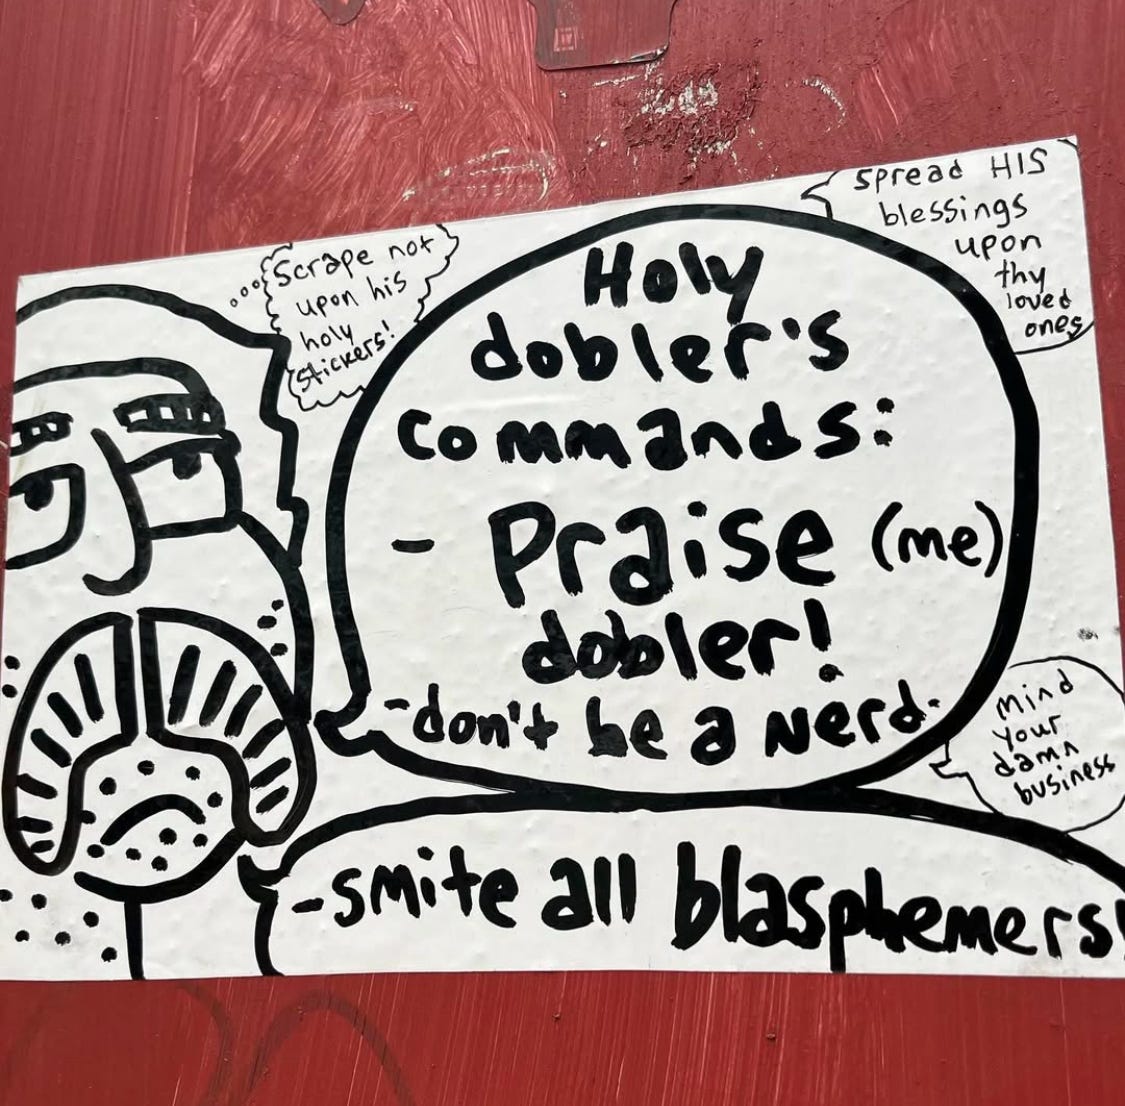 Scrape not
upon his
holy
stickers!
Spread HIS
blessings
upon
thy
loved
ones
Holy
dobler's
commands:
- Praise (me)
dobler!
-don't be a nerd-
mind
your
damn
business
-smite all blasphemers!